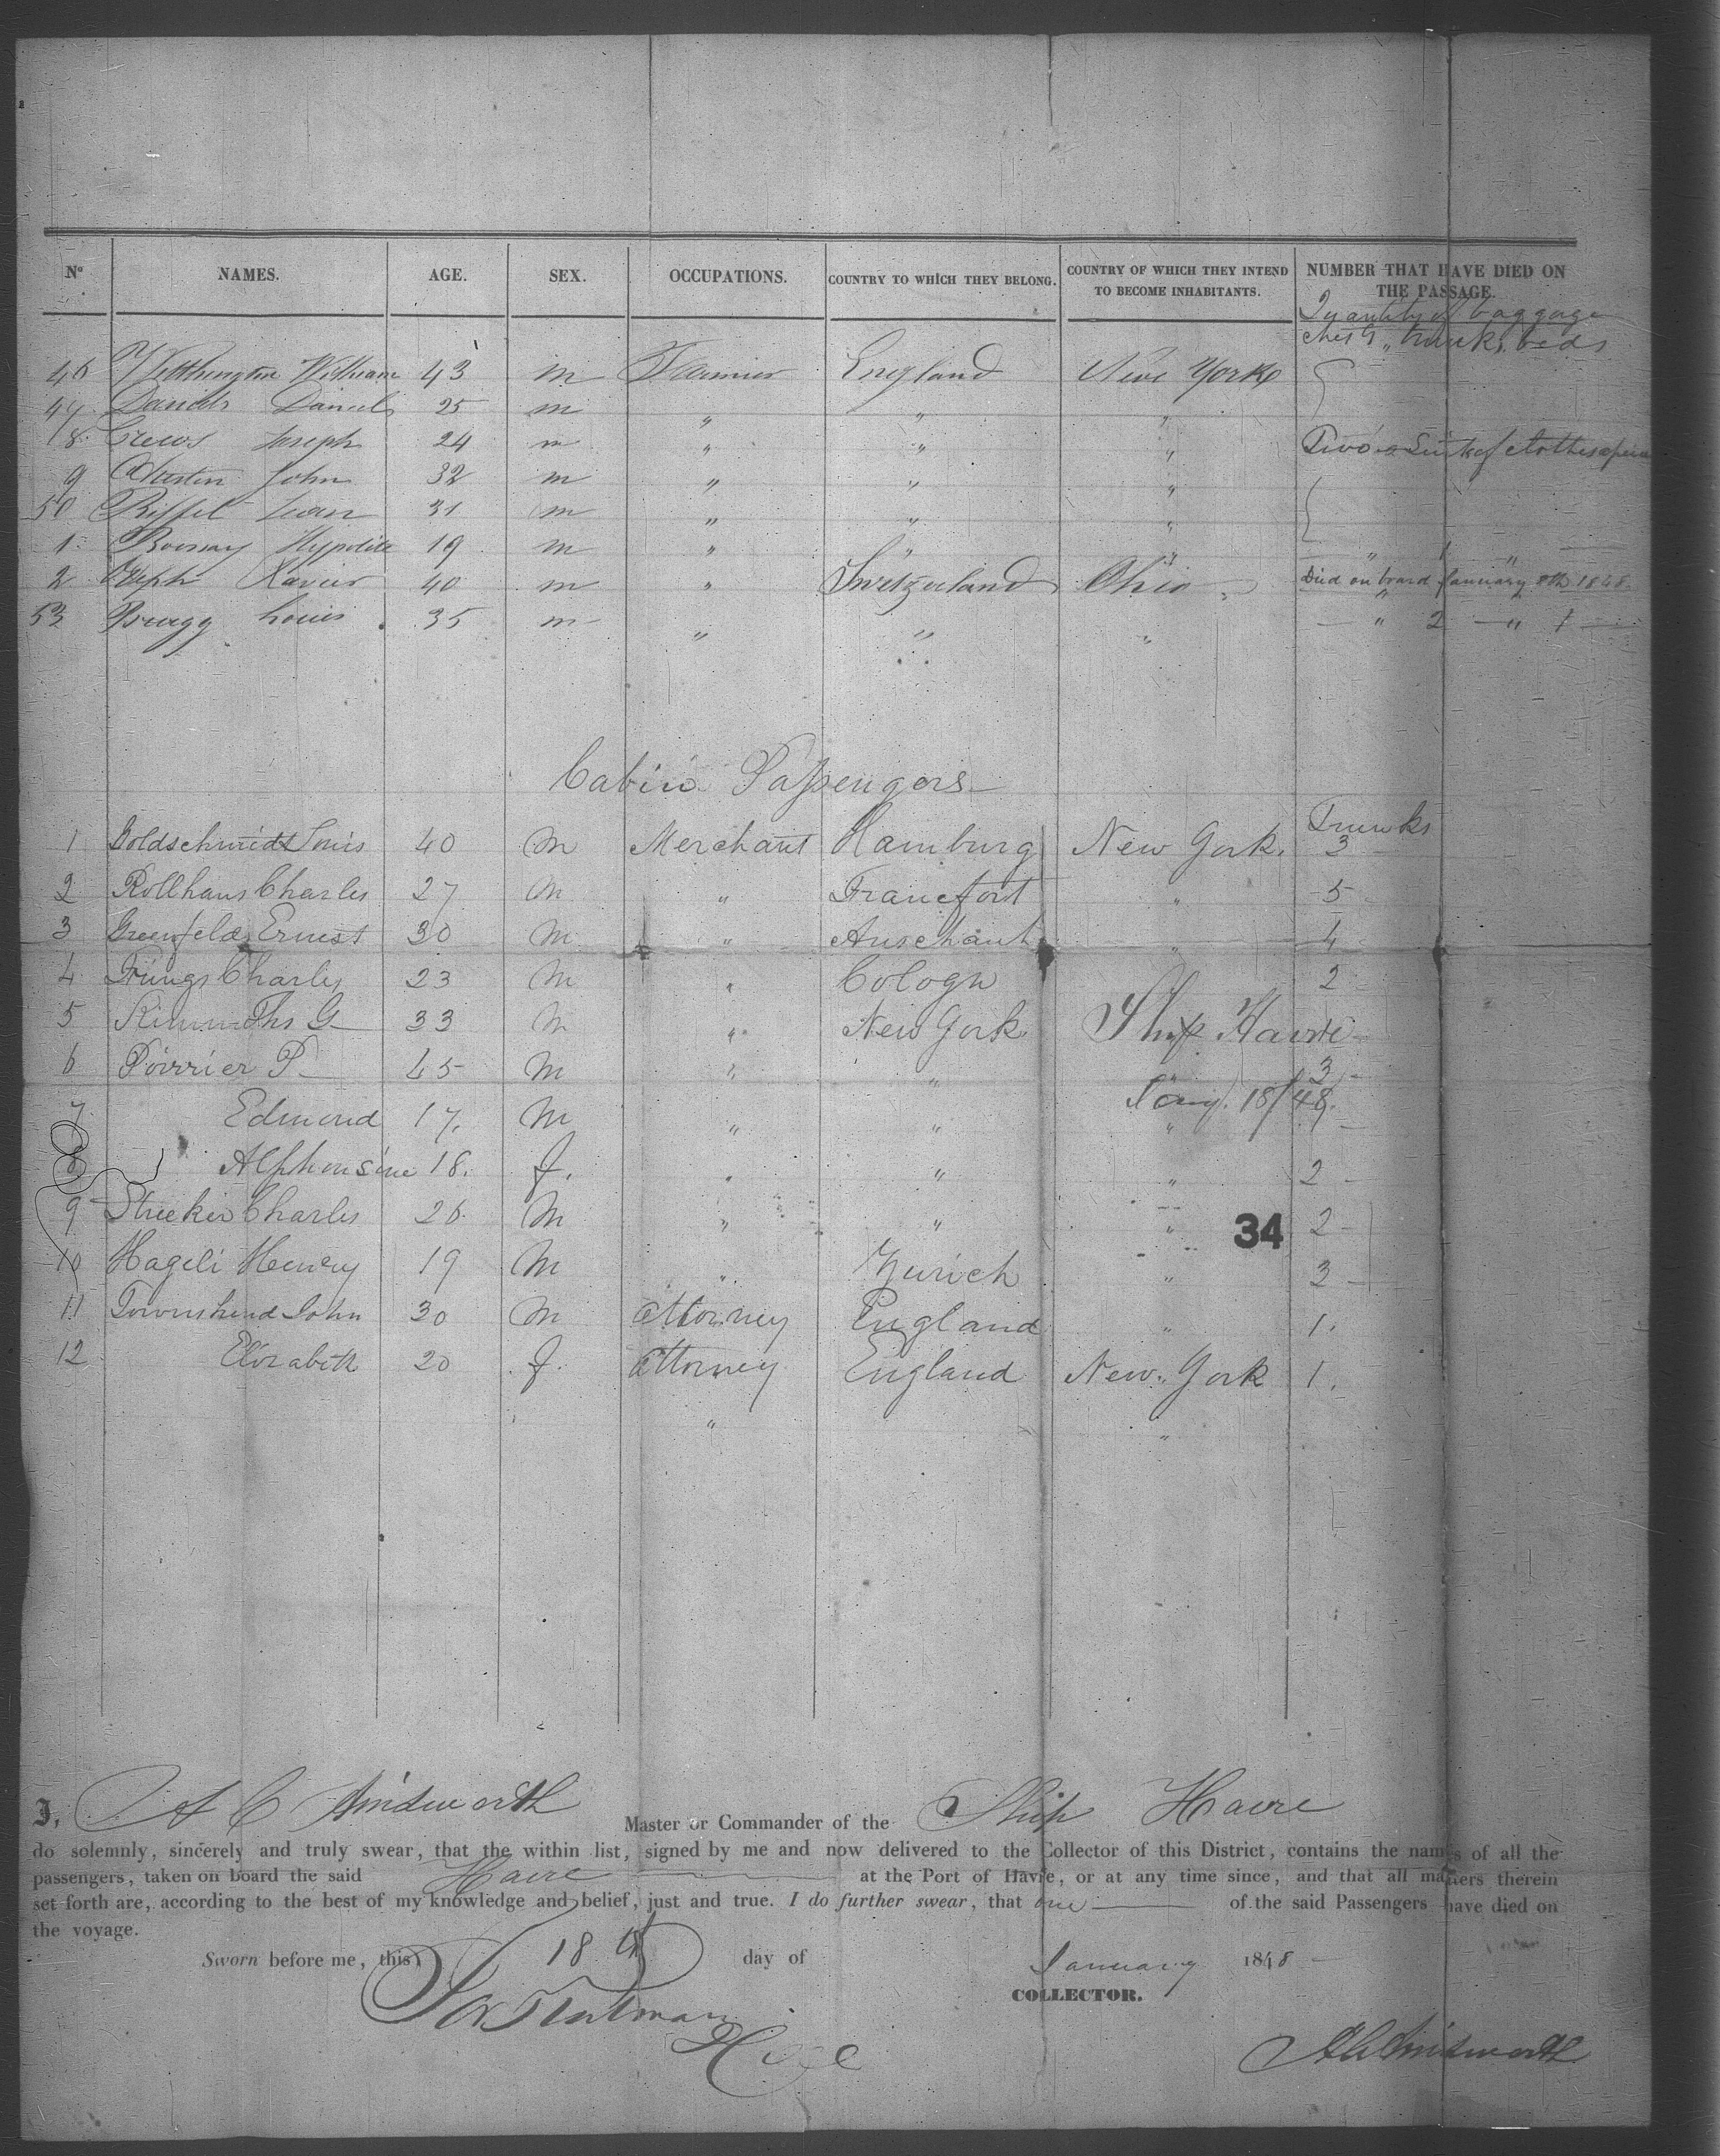 Nº NAMES. AGE. SEX. OCCUPATIONS. COUNTRY TO WHICH THEY BELONG. COUNTRY OF WHICH THEY INTEND TO BECOME INHABITANTS. NUMBER THAT HAVE DIED ON THE PASSAGE.
Quantity of baggage
chests, trunks, beds
46 William 43 m Farmer England New York
47 Daniels Daniel 25 m " " "
48 Crews Joseph 24 m " " " Two Suits of clothes apiece
9 John 32 m " " "
50 31 m " " "
1 Hypolite 19 m " " " " 1 "
2 Xavier 40 m " Switzerland Ohio Died on board January 8th 1848.
53 Louis 35 m " " " " 2 " 1
Cabin Passengers
Trunks
1 Goldschmidt Louis 40 m Merchant Hamburg New York. 3
2 Rollhaus Charles 27 m " Francfort " 5
3 Greenfeld Ernest 30 m " " 4
4 Frings Charles 23 m " Cologn 2
5 Ths G 33 m " New York Ship Havre
6 Poirrier P 45 m " " " 3
Jany. 18/48.
7 Edmond 17. m " " "
8 Alphonsine 18. f. " " " 2
9 Strecker Charles 26. m " " " 2
34
10 Hageli Henry 19 m " Zurich " 3
11 Townshend John 30 m attorney England " 1.
12 Elizabeth 20 f. attorney England New York 1.
" "
I, A C Ainsworth Master or Commander of the Ship Havre
do solemnly, sincerely and truly swear, that the within list, signed by me and now delivered to the Collector of this District, contains the names of all the
passengers, taken on board the said Havre at the Port of Havre, or at any time since, and that all matters therein
set forth are, according to the best of my knowledge and belief, just and true. I do further swear, that one of the said Passengers have died on
the voyage.
Sworn before me, this 18th day of January 1848
COLLECTOR.
A C Ainsworth